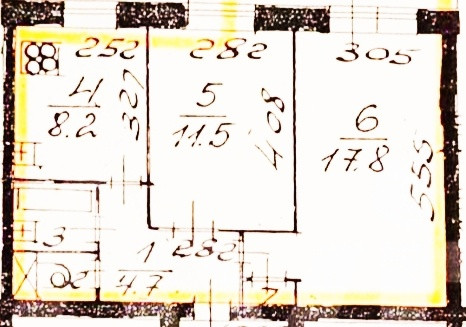 252 282 305
4 327 5 408 6 555
8.2 11.5 17.8
3 1 282
2 4.7 7